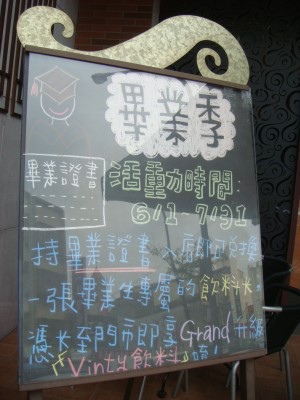 畢業季
畢業證書
活動時間:
6/1~7/31
持畢業證書 入店即可兌換
一張畢業生專屬的飲料卡。
憑卡至門市即享Grand升級
『Vinty飲料』唷!